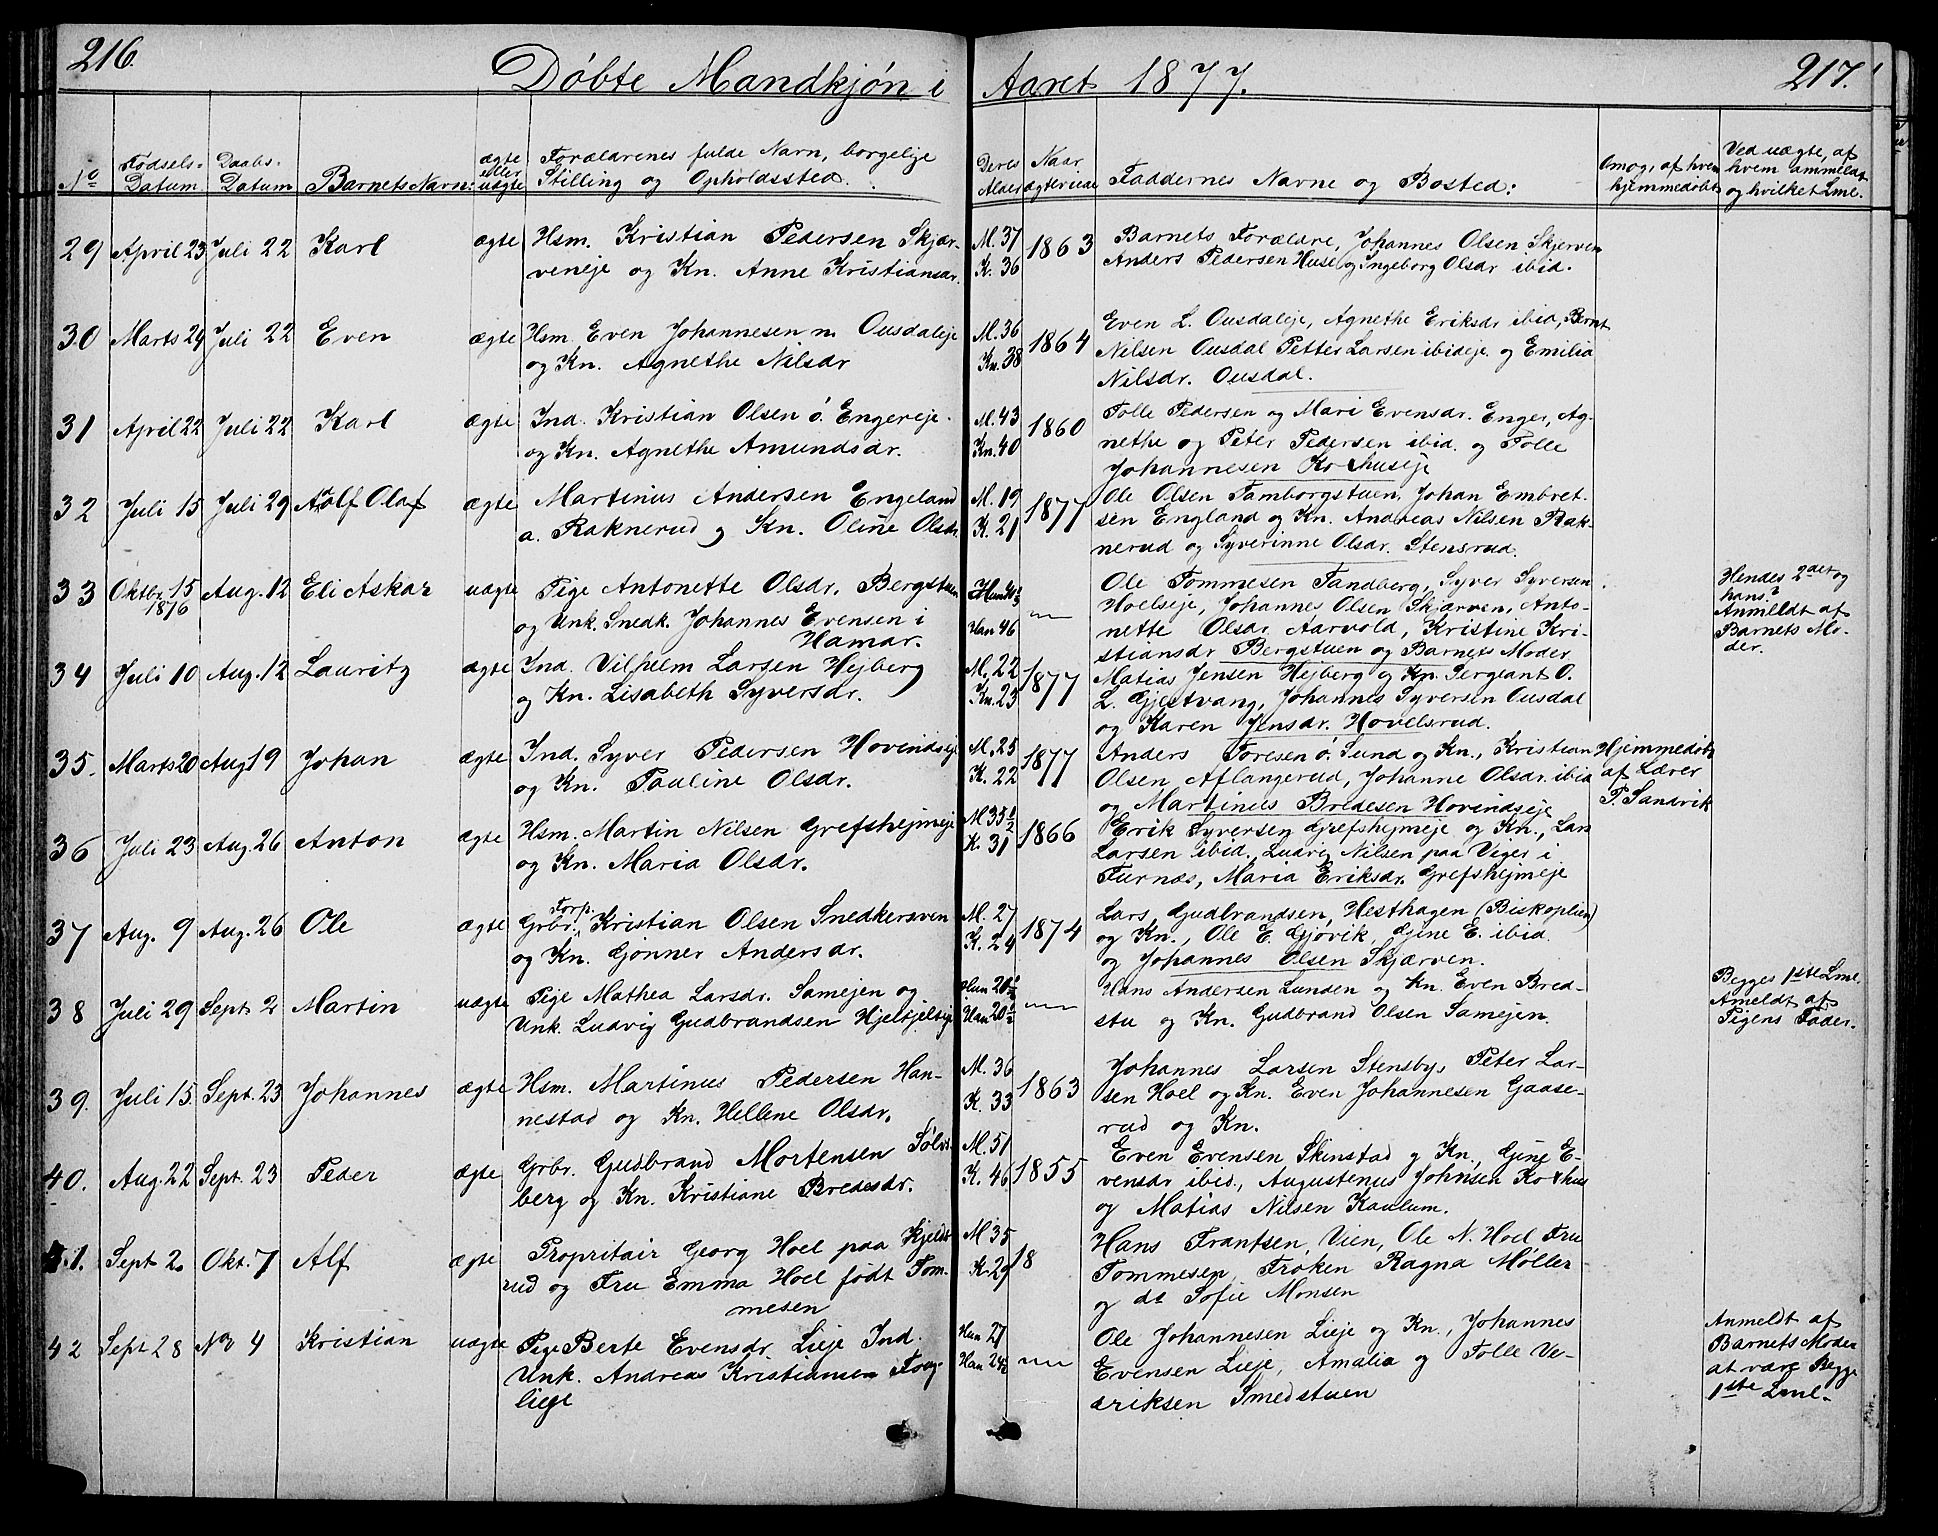 216.
Døbte Mandkjøn i Aaret 1877.
217.
No
Fødsels-Datum
Daabs-Datum
Barnets Navn:
ægte eller uægte
Forældrenes fulde Navn, borgelije
Stilling og Opholdssted.
Deres Alder
Naar ægteviede
Faddernes Navne og Bosted:
Omog, af hvem
hjemmedøbt
Ved uægte, af
hvem anmeldt
og hvilket Lml.
29 April 23 Juli 22 Karl ægte Hsm. Kristian Pedersen Skjær-
veneje og Kn. Anne Kristiansdr.
M. 37
K. 36
1863
Barnets Forældre, Johannes Olsen Skjerven
Anders Pedersen Huse og Ingeborg Olsdr ibid.
30 Marts 24 Juli 22 Even ægte Hsm. Even Johannesen n. Ousdaleje
og Kn. Agnethe Nilsdr
M. 36
Kn. 38
1864
Even L. Ousdaleje, Agnethe Eriksdr ibid, Bernt
Nilsen Ousdal Petter Larsen ibideje. og Emilia
Nilsdr. Ousdal.
31 April 22 Juli 22 Karl ægte Ind. Kristian Olsen ø. Engereje.
og Kn. Agnethe Amundsdr.
M. 43
Kn. 40
1860
Tolle Pedersen og Mari Evensdr. Enger, Ag-
nethe og Peter Pedersen ibid. og Tolle
Johannesen Korthuseje
32 Juli 15 Juli 29 Adolf Olaf ægte Martinus Andersen Engeland
a. Raknerud og Kn. Oline Olsdr.
M. 19
K. 21
1877
Ole Olsen Tamborgstuen, Johan Embret-
sen England og Kn. Andreas Nilsen Rak-
nerud og Syverinne Olsdr. Stensrud.
33 Oktbr. 15 1876 Aug. 12 Eli Askar uægte Pige Antonette Olsdr. Bergstuen
og Unk. Snedk. Johannes Evensen i
Hamar.
Han 46
Ole Tommesen Tandberg, Syver Syversen
Hoelseje, Johannes Olsen Skjærven, Anto-
nette Olsdr Aarvold, Kristine Kri-
stiansdr Bergstuen og Barnets Moder
Hendes 2det og
hans?
Anmeldt af
Barnets Mo-
der.
34 Juli 10 Aug. 12 Lauritz ægte Ind. Vilhelm Larsen Hejberg
og Kn. Lisabeth Syversdr.
M. 22
Kn. 23
1877
Matias Jensen Hejberg og Kn. Sergeant O.
L. Gjestvang, Johannes Syversen Ousdal
og Karen Jensdr. Hovelsrud.
35. Marts 20 Aug 19 Johan ægte Ind. Syver Pedersen Hovindseje
og Kn. Pauline Olsdr.
M. 25
K. 22
1877
Anders Toresen ø. Sund og Kn., Kristian
Olsen Aflangerud, Johanne Olsdr. ibid
og Martinus Bredesen Hovindseje
Hjemmedøbt
af Lærer
P. Sandvik
36 Juli 23 Aug. 26 Anton ægte Hsm. Martin Nilsen Grefshejmeje
og Kn. Maria Olsdr.
M 35 1/2
K. 31
1866
Erik Syversen Grefshejmeje og Kn., Lars
Larsen ibid., Ludvig Nilsen paa Viger i
Furnæs, Maria Eriksdr. Grefshejmeje
37 Aug. 9 Aug. 26 Ole ægte Grbr. Forp. Kristian Olsen Snedkersven
og Kn. Gjønner Andersdr.
M. 27
K. 24
1874
Lars Gudbrandsen, Hesthagen (Biskoplien)
og Kn., Ole E. Gjøvik, Gjine E. ibid.
og Johannes Olsen Skjærven.
38 Juli 29 Sept. 2 Martin uægte Pige Mathea Larsdr. Samejen og
Unk. Ludvig Gudbrandsen
Hun 20 1/2
Han 20 1/2
Hans Andersen Lunden og Kn. Even Bred-
stu og Kn. Gudbrand Olsen Samejen.
Begges 1ste Lml.
Ameldt af
Pigens Fader.
39. Juli 15. Sept. 23 Johannes ægte Hsm. Martinus Pedersen Han-
nestad og Kn. Hellene Olsdr.
M. 36
K. 33
1863
Johannes Larsen Stensby, Peter Lar-
sen Hoel og Kn. Even Johannesen Gaase-
rud og Kn.
40. Aug. 22 Sept. 23 Peder ægte Grbr. Gudbrand Mortensen Sølvs-
berg og Kn. Kristiane Bredesdr.
M. 51
K. 46
1855
Even Evensen Skinstad og Kn., Gjine E-
vensdr ibid., Augustenus Johnsen Korthus
og Matias Nilsen Kaulum.
41. Sept 2. Okt. 7 Alf ægte Propritair Georg Hoel paa Kjelds-
rud og Frue Emma Hoel født Tom-
mesen
M 35
K 29
18
Hans Frantsen, Vien, Ole N. Hoel Frue
Tommesen, Frøken Ragna Møller
og do Sofie Monsen
42 Sept 28 Nov 4 Kristian uægte Pige Berte Evensdr. Lieje Ind.
Unk. Andreas Kristiansen Fog-
liege
Hun 27
Han 24
Ole Johannesen Lieje og Kn., Johannes
Evensen Lieje, Amalia og Tolle Ve-
driksen Smedstuen
Anmeldt af
Barnets Moder
at være Begges
1ste Lml.